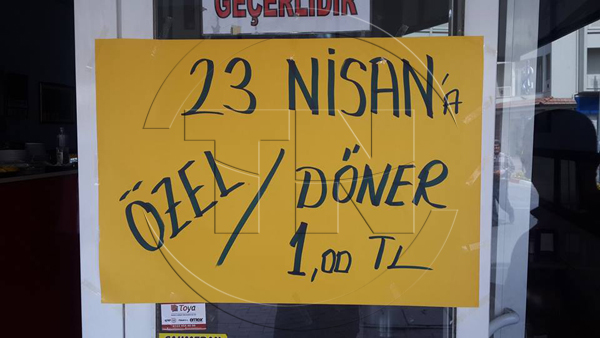 GEÇERLİDİR
23 NİSAN'A
ÖZEL / DÖNER
1,00 TL
TN
Toya